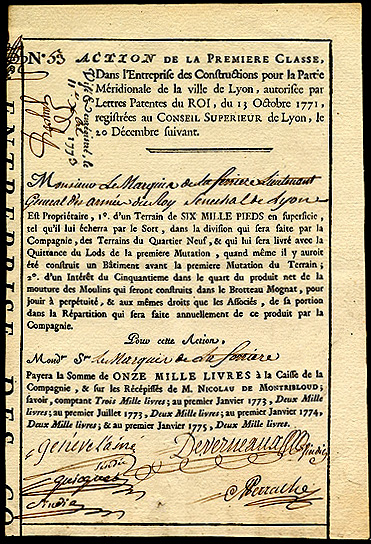 Nº. 53 ACTION DE LA PREMIERE CLASSE,
Dans l'Entreprise des Constructions pour la Partie
Méridionale de la ville de Lyon, autorisée par
Lettres Patentes du ROI, du 13 Octobre 1771,
registrées au CONSEIL SUPERIEUR de Lyon, le
20 Décembre suivant.
Monsieur Le Marquis de la ferriere Lieutenant
General des armées du Roy Senechal de Lyon
Est Propriétaire, 1º. d'un Terrain de SIX MILLE PIEDS en superficie,
tel qu'il lui écherra par le Sort, dans la division qui sera faite par la
Compagnie, des Terrains du Quartier Neuf, & qui lui sera livré avec la
Quittance du Lods de la premiere Mutation, quand même il y auroit
été construit un Bâtiment avant la premiere Mutation du Terrain;
2º. d'un Intérêt du Cinquantieme dans le quart du produit net de la
mouture des Moulins qui seront construits dans le Brotteau Mognat, pour
jouir à perpétuité, & aux mêmes droits que les Associés, de sa portion
dans la Répartition qui sera faite annuellement de ce produit par la
Compagnie.
Pour cette Action,
Mondr. Sr. Le Marquis de la ferriere
Payera la Somme de ONZE MILLE LIVRES à la Caisse de la
Compagnie, & sur les Récépissés de M. NICOLAU DE MONTRIBLOUD;
savoir, comptant Trois Mille livres; au premier Janvier 1773, Deux Mille
livres; au premier Juillet 1773, Deux Mille livres; au premier Janvier 1774,
Deux Mille livres; & au premier Janvier 1775, Deux Mille livres.
Sindic
Perrache
ENTREPRISE DES CO